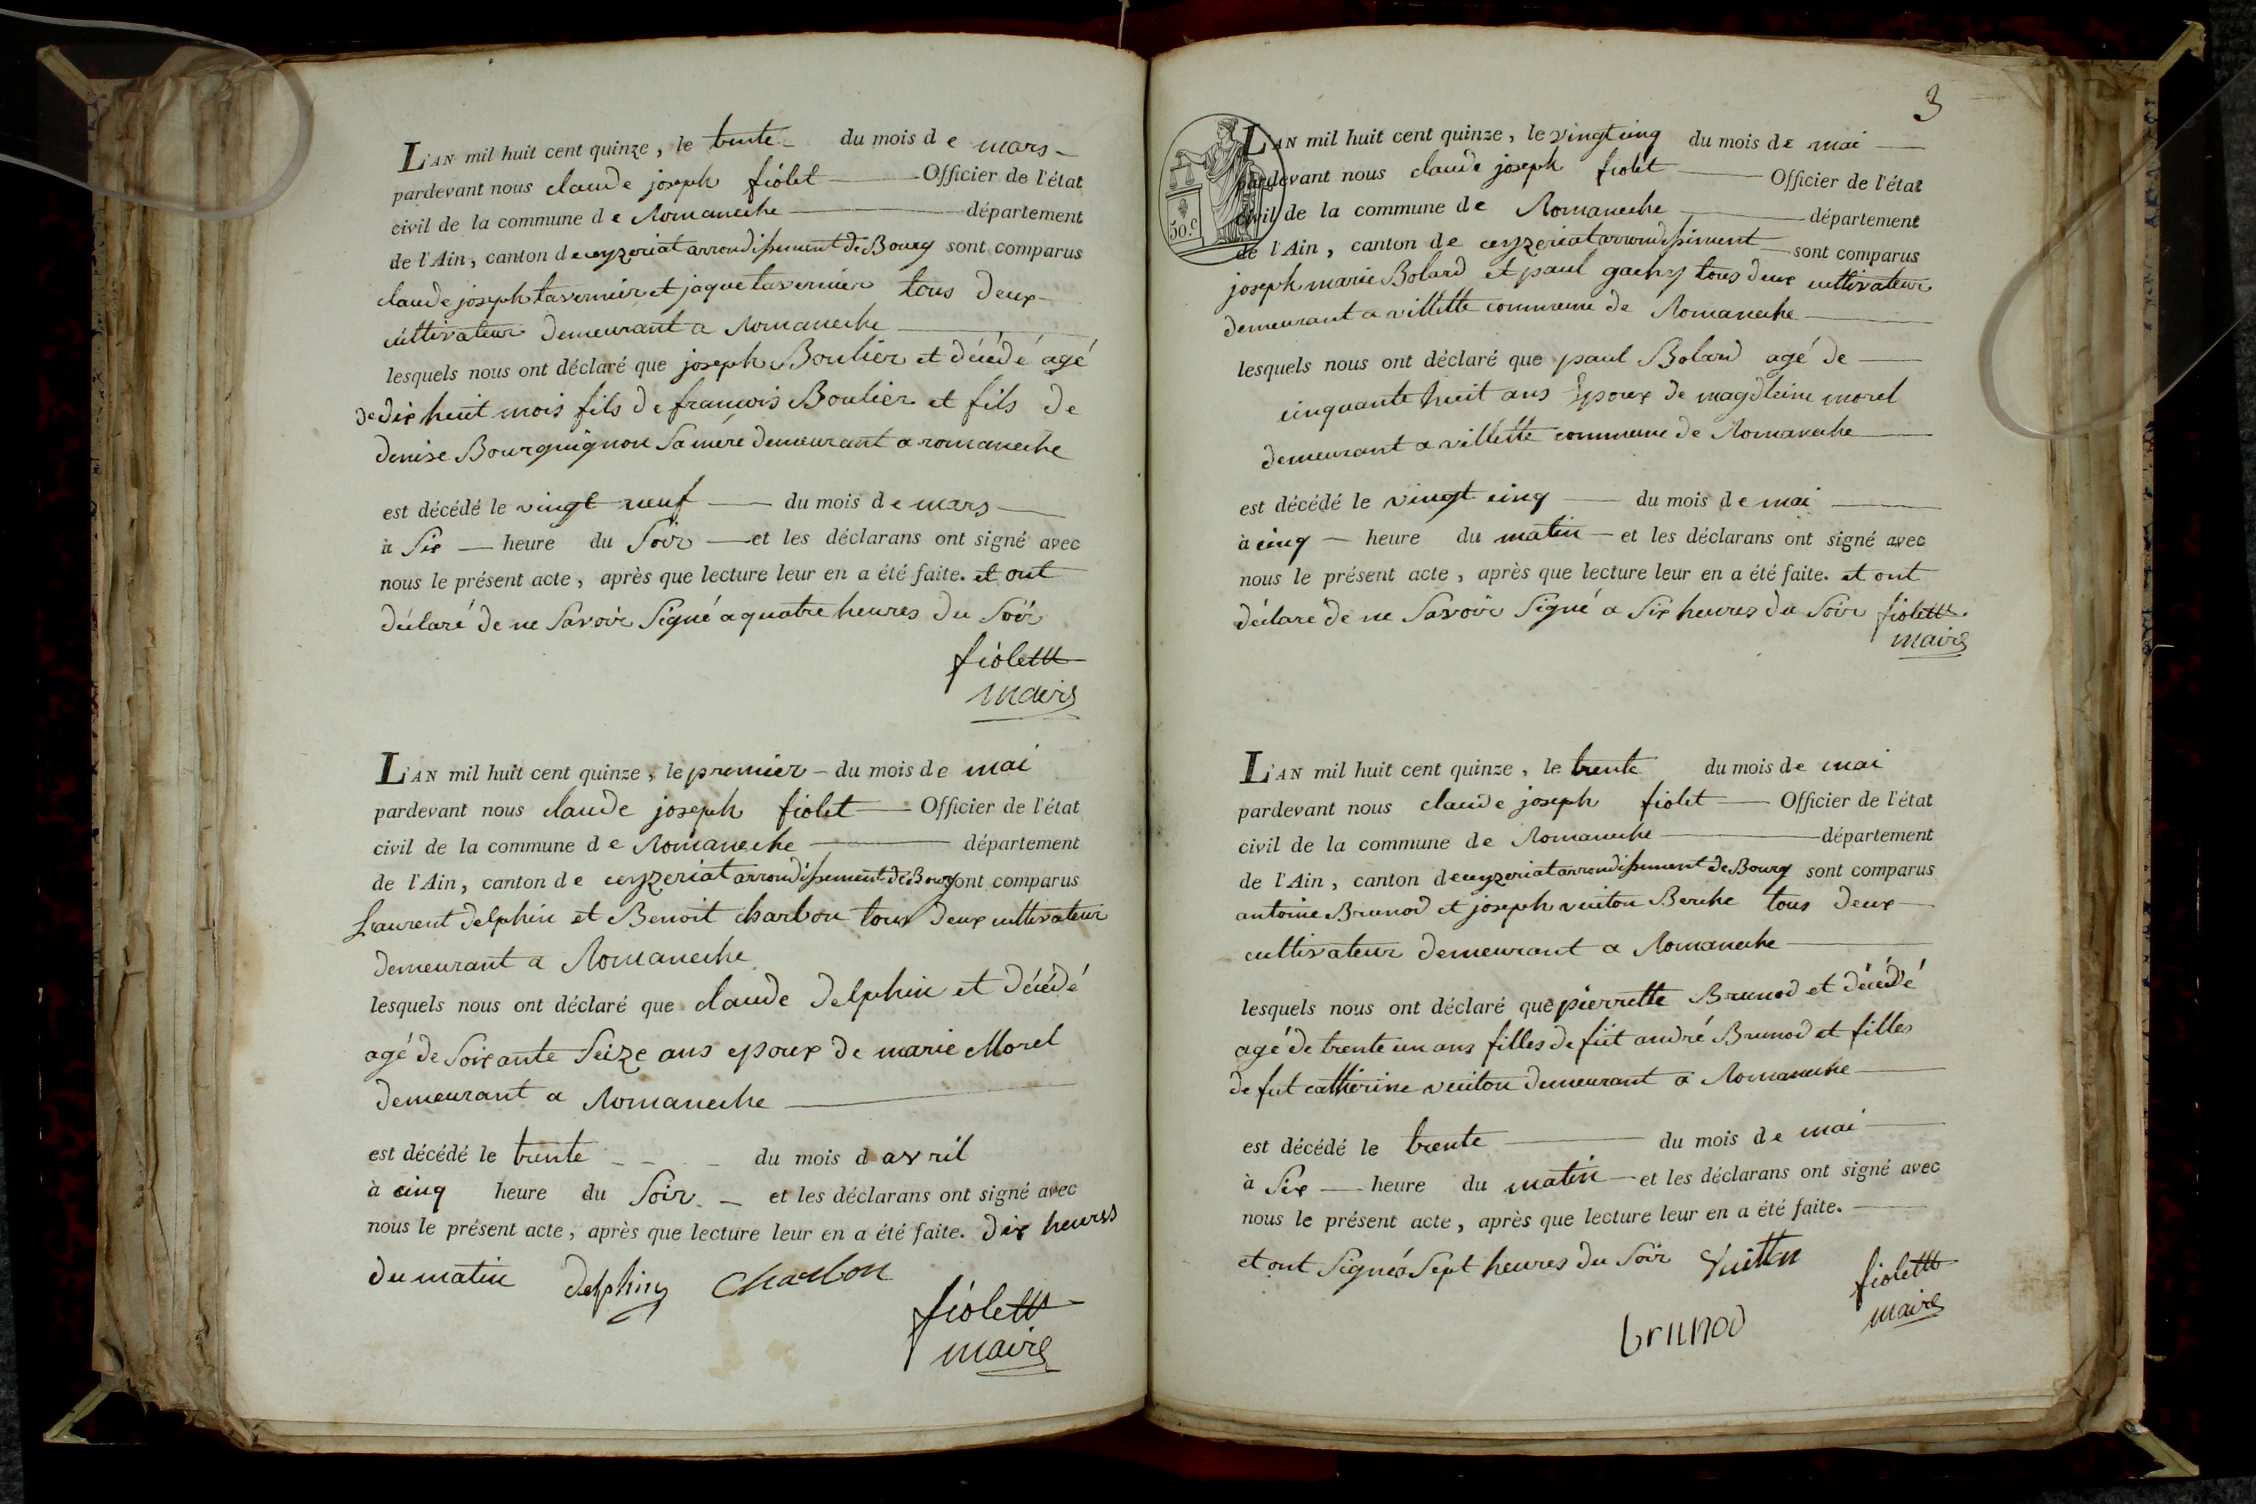 L'AN mil huit cent quinze, le trente du mois de mars
pardevant nous claude joseph fiolet Officier de l'état
civil de la commune de Romaneche département
de l'Ain, canton de ceyzeriat arrondissement de Bourg sont comparus
claude joseph tavernier et jaque tavernier tous deux
cultivateur demeurant a Romaneche
lesquels nous ont déclaré que joseph Boulier et décédé agé
de dix huit mois fils de francois Boulier et fils de
denise Bourguignon sa mere demeurant a romaneche
est décédé le vingt neuf du mois de mars
à six heure du soir et les déclarans ont signé avec
nous le présent acte, après que lecture leur en a été faite. et ont
déclaré de ne savoir signé a quatre heures du soir
fiolett
maire
L'AN mil huit cent quinze, le premier du mois de mai
pardevant nous claude joseph fiolet Officier de l'état
civil de la commune de Romaneche département
de l'Ain, canton de ceyzeriat arrondissement de Bourg sont comparus
Laurent delphin et Benoit charbon tous deux cultivateur
demeurant a Romaneche
lesquels nous ont déclaré que claude delphin et décédé
agé de soixante seize ans epoux de marie Morel
demeurant a Romaneche
est décédé le trente du mois d avril
à cinq heure du soir et les déclarans ont signé avec
nous le présent acte, après que lecture leur en a été faite. dix heures
du matin delphin Charbon
fiolett
maire
3
50.c
L'AN mil huit cent quinze, le vingt cinq du mois de mai
pardevant nous claude joseph fiolet Officier de l'état
civil de la commune de Romaneche département
de l'Ain, canton de ceyzeriat arrondissiment sont comparus
joseph marie Bolard et paul gachy tous deux cultivateur
demeurant a villette commune de Romaneche
lesquels nous ont déclaré que paul Bolard agé de
cinquante huit ans Epoux de magdleine morel
demeurant a villette commune de Romaneche
est décédé le vingt cinq du mois de mai
à cinq heure du matin et les déclarans ont signé avec
nous le présent acte, après que lecture leur en a été faite. et ont
déclaré de ne savoir signé a six heures du soir fiolett
maire
L'AN mil huit cent quinze, le trente du mois de mai
pardevant nous claude joseph fiolet Officier de l'état
civil de la commune de Romaneche département
de l'Ain, canton de ceyzeriat arrondissement de Bourg sont comparus
antoine Brunod et joseph vuiton Berche tous deux
cultivateur demeurant a Romaneche
lesquels nous ont déclaré que pierrette Brunod et décédé
agé de trente un ans filles de fut andré Brunod et filles
de fut catherine vuiton demeurant a Romaneche
est décédé le trente du mois de mai
à six heure du matin et les déclarans ont signé avec
nous le présent acte, après que lecture leur en a été faite.
et ont signé a sept heures du soir Vuitton fiolett
brunod maire